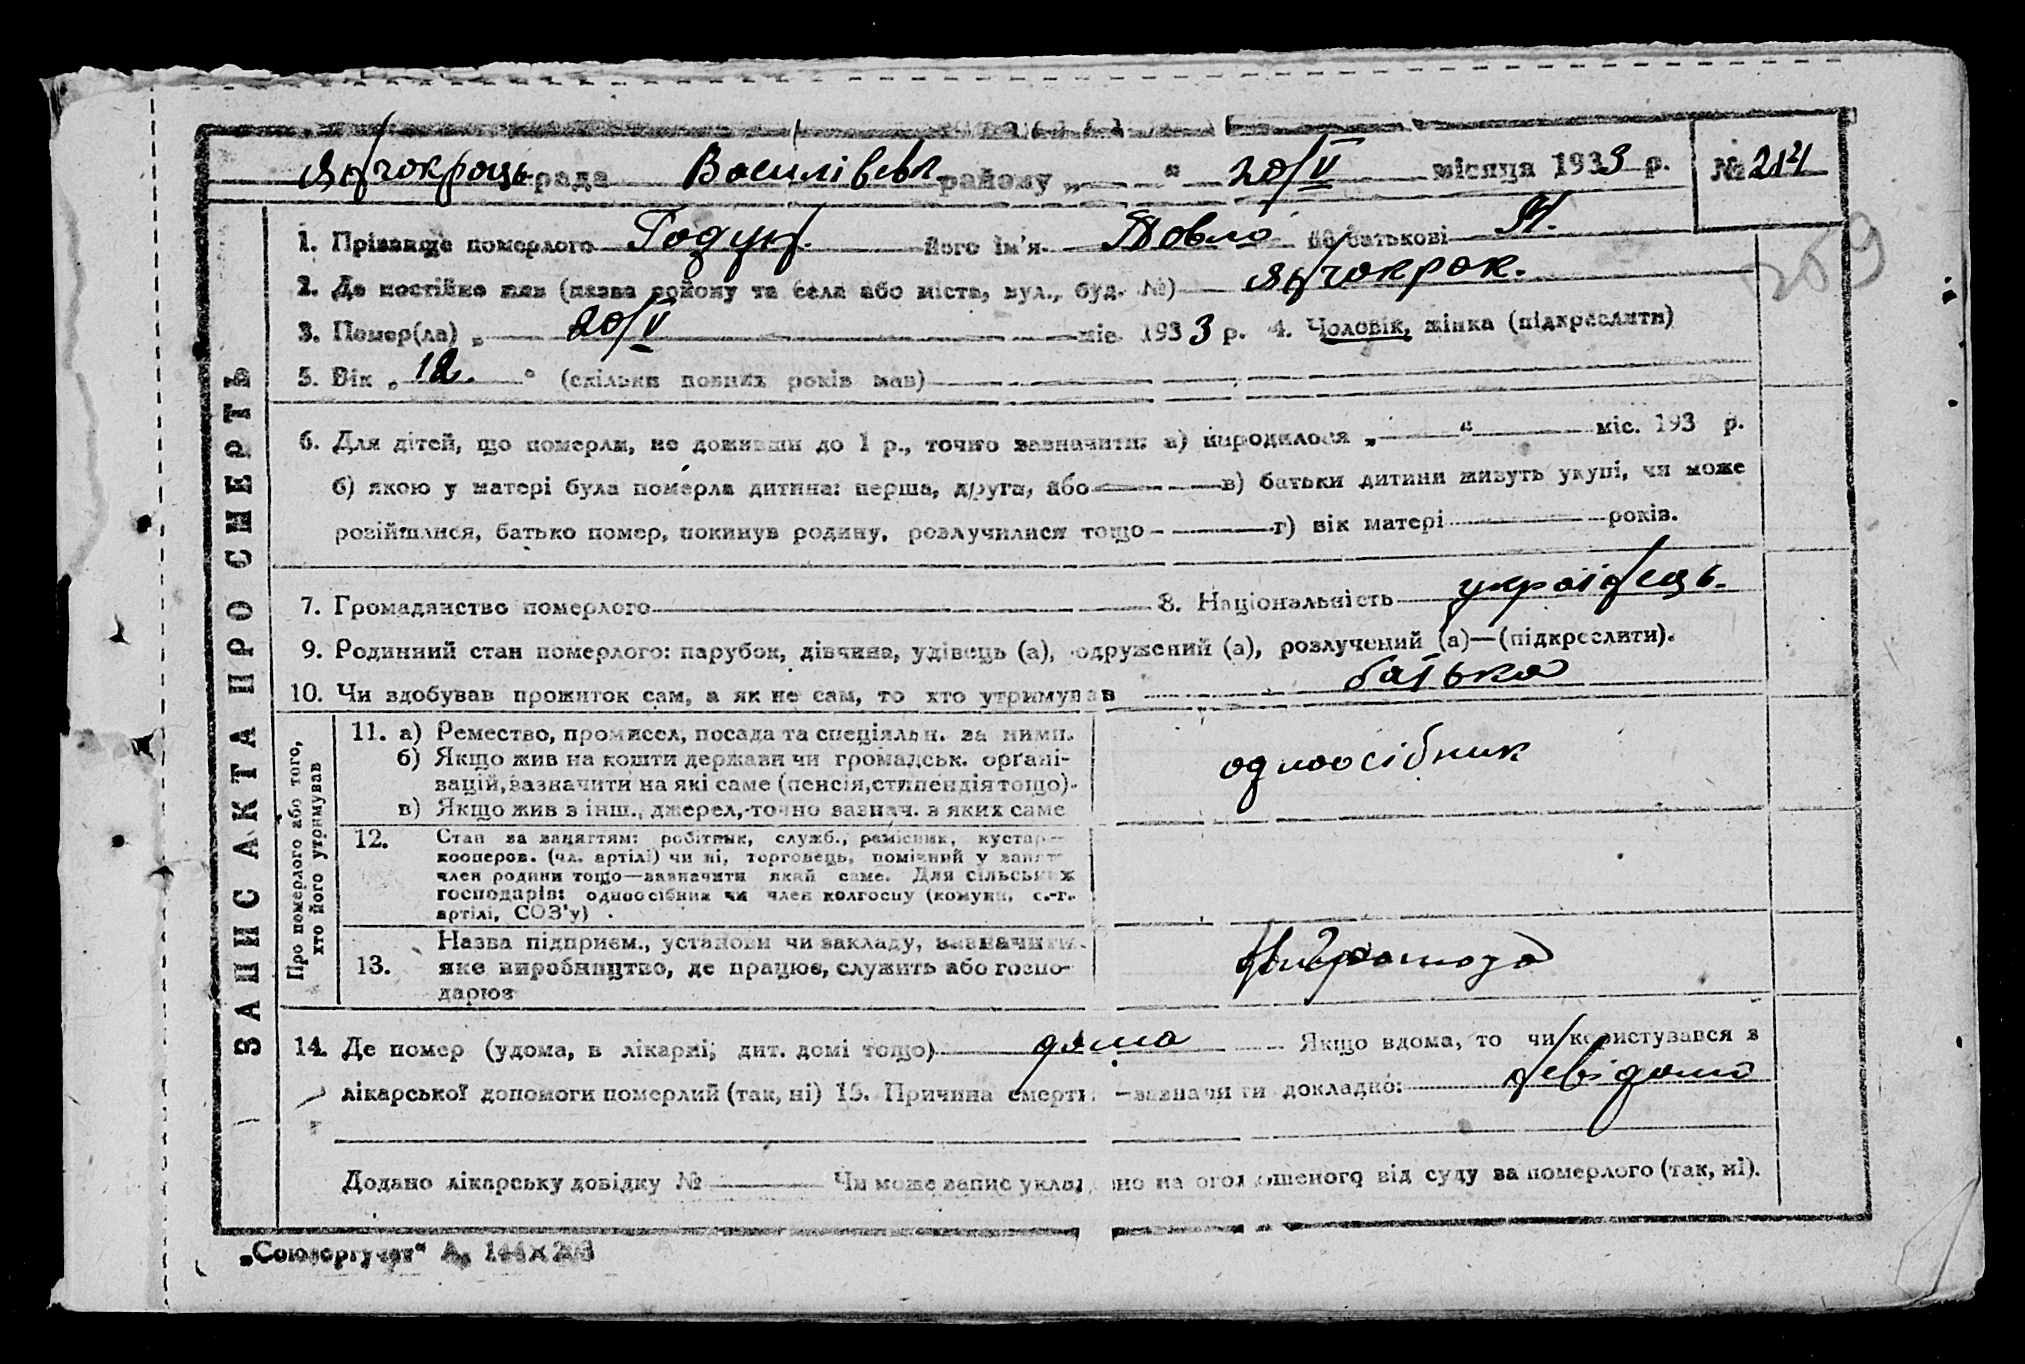 Янчокроць рада Василівськ району „ “ 20/V місяця 1933 р. № 214
1. Прізвище померлого Годун. його ім'я Павло по батькові П.
259
2. Де постійно жив (назва району та села або міста, вул., буд. №) Янчокрак.
3. Помер(ла) „ 20/V міс. 1933 р. 4. Чоловік, жінка (підкреслити)
5. Вік „ 12. “ (скільки повних років мав)
6. Для дітей, що померли, не доживши до 1 р., точно зазначити: а) народилося „ “ міс. 193 р.
б) якою у матері була померла дитина: перша, друга, або в) батьки дитини живуть укупі, чи може
розійшлися, батько помер, покинув родину, розлучилися тощо г) вік матері років.
7. Громадянство померлого 8. Національність українець.
9. Родинний стан померлого: парубок, дівчина, удівець (а), одружений (а), розлучений (а)—(підкреслити).
10. Чи здобував прожиток сам, а як не сам, то хто утримував батько
ЗАПИС АКТА ПРО СМЕРТЬ
Про померлого або того,
хто його утримував
11. а) Ремество, промисел, посада та спеціяльн. за ними.
б) Якщо жив на кошти держави чи громадськ. органі-
зацій, зазначити на які саме (пенсія, стипендія тощо).
в) Якщо жив з інш., джерел,-точно зазнач. з яких саме
одноосібник
12. Стан за заняттям: робітник, служб., ремісник, кустар—
кооперов. (чл. артілі) чи ні, торговець, помічний у занят.
член родини тощо—зазначити який саме. Для сільських
господарів: одноосібник чи член колгоспу (комуни, с.-г.
артілі, СОЗ'у) .
13. Назва підприєм., установи чи закладу, зазначити.
яке виробництво, де працює, служить або госпо-
дарює
14. Де помер (удома, в лікарні, дит. домі тощо) дома Якщо вдома, то чи користувався з
лікарської допомоги померлий (так, ні) 15. Причина смерти —зазначити докладно: невідомо
Додано лікарську довідку № Чи може запис укладено на оголошеного від суду за померлого (так, ні).
„Союзоргучет“ А, 144×203